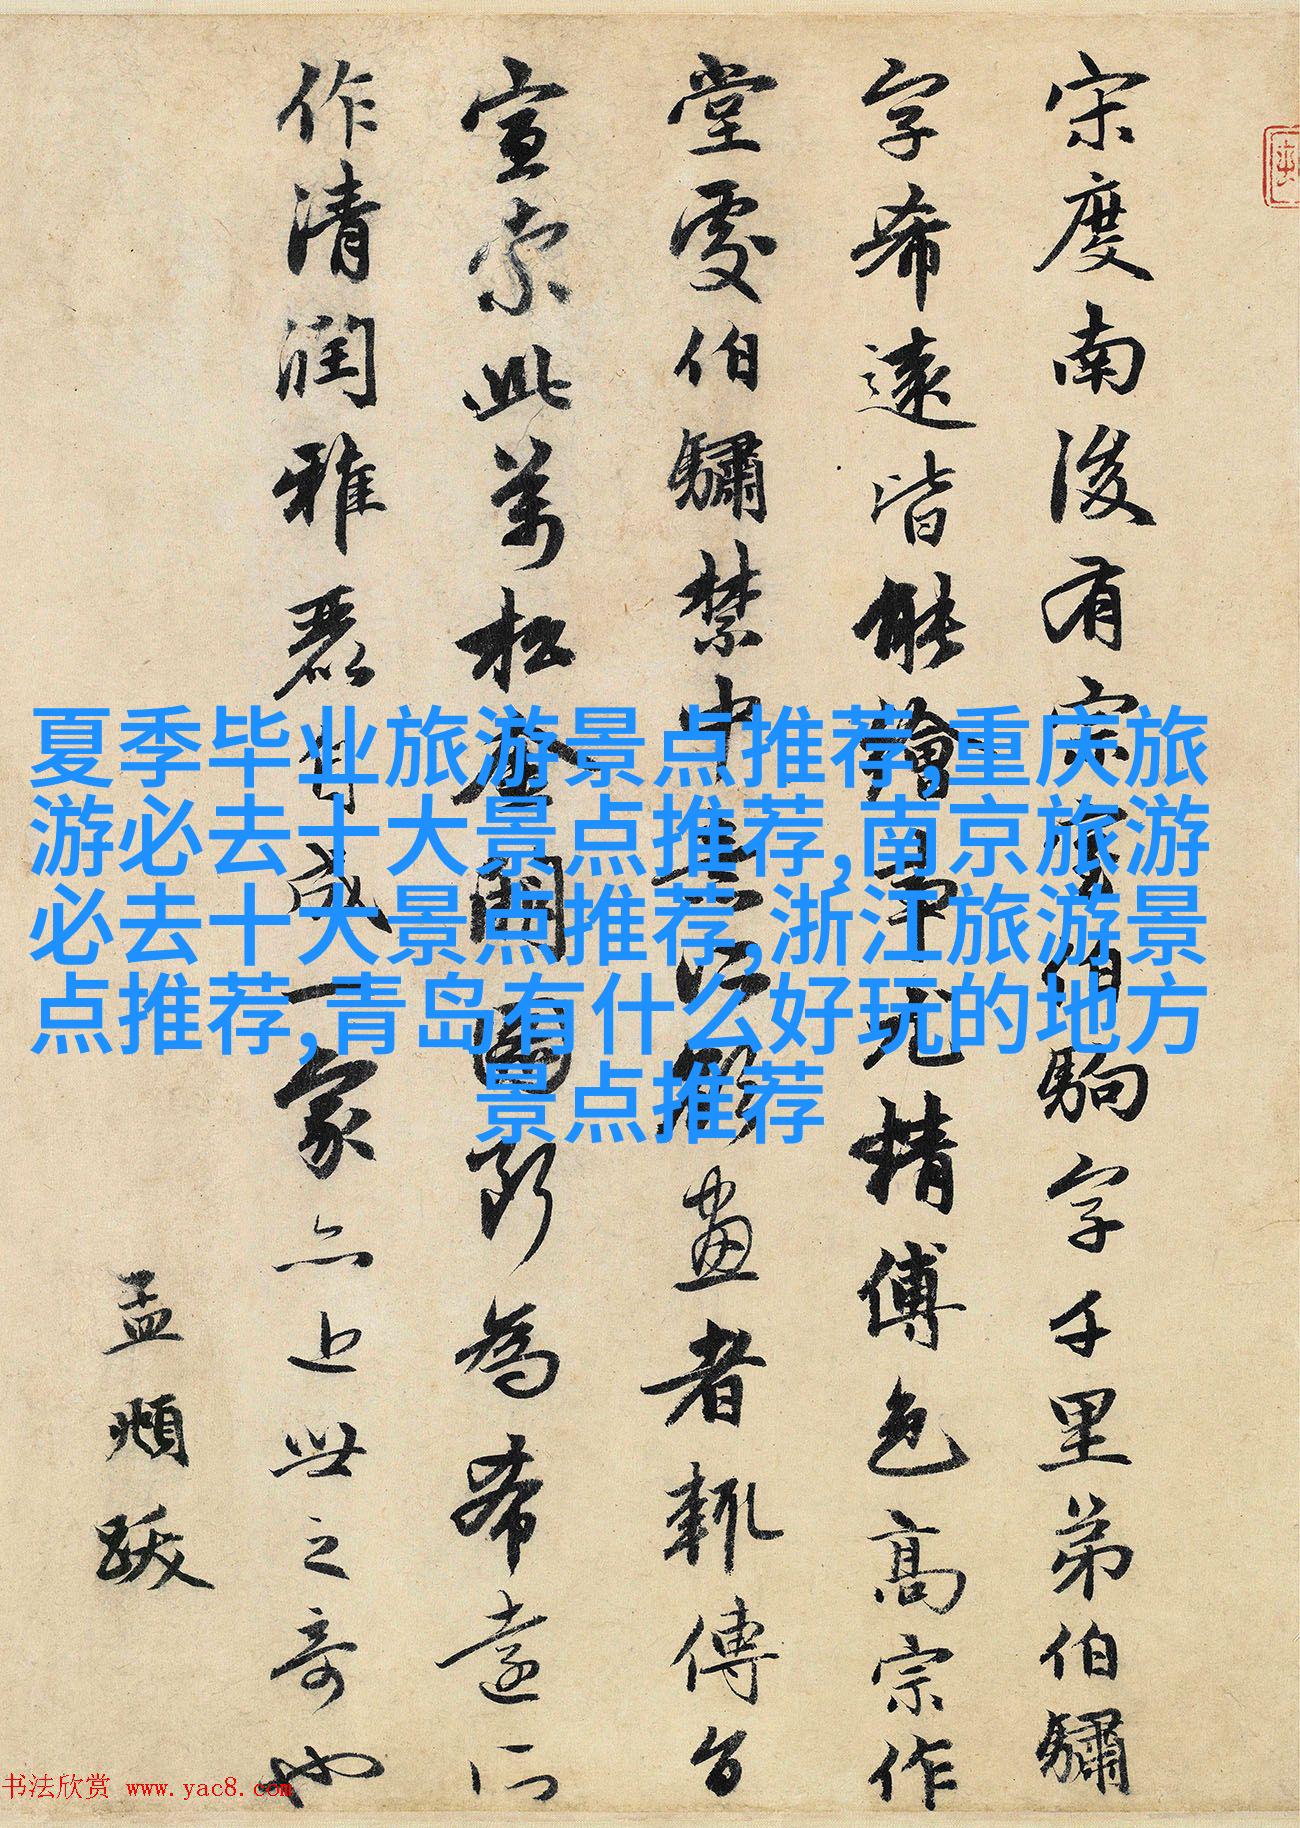 宋度南後有宗室伯駒字千里弟伯驌
字希遠皆能繪事尤精傅色高宗作
堂處伯驌禁中意所欲畫者輒傳旨
宣索此萬松金闕圖斷為希遠所
作清潤雅麗自成一家亦近世之奇也
孟頫跋
夏季毕业旅游景点推荐,重庆旅
游必去十大景点推荐,南京旅游
必去十大景点推荐,浙江旅游景
点推荐,青岛有什么好玩的地方
景点推荐
书法欣赏 www.yac8.com